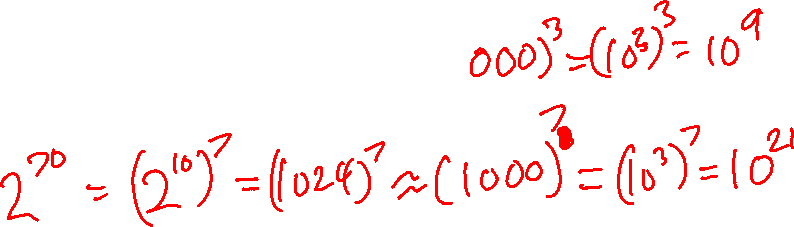 000)³ = (10³)³ = 10⁹
2⁷⁰ = (2¹⁰)⁷ = (1024)⁷ ≈ (1000)⁷ = (10³)⁷ = 10²¹